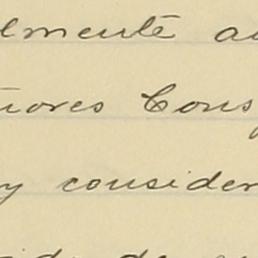 lmente au
nores Cons
y consider
de